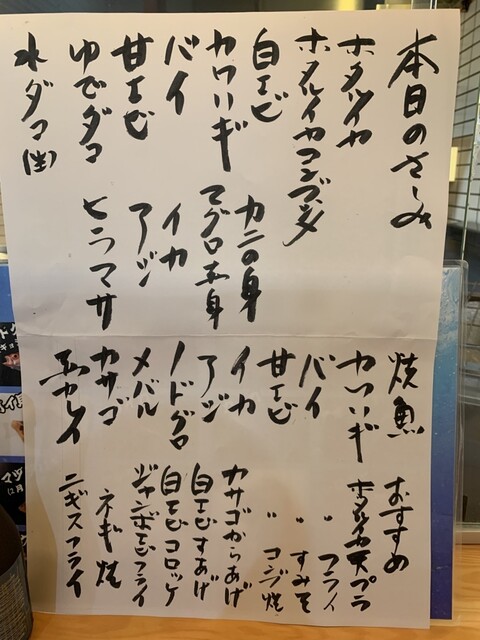 本日のさしみ
ホタルイカ
ホタルイカコンブ〆
白エビ
カワハギ
バイ
甘エビ
ゆでダコ
水ダコ(生)
カニの身
マグロ赤身
イカ
アジ
ヒラマサ
焼魚
カワハギ
バイ
甘エビ
イカ
アジ
ノドグロ
メバル
カサゴ
赤カレイ
おすすめ
ホタルイカ天プラ
〃 フライ
〃 すみそ
〃 コンブ焼
カサゴからあげ
白エビすあげ
白エビコロッケ
ジャンボエビフライ
ネギ焼
ニギスフライ